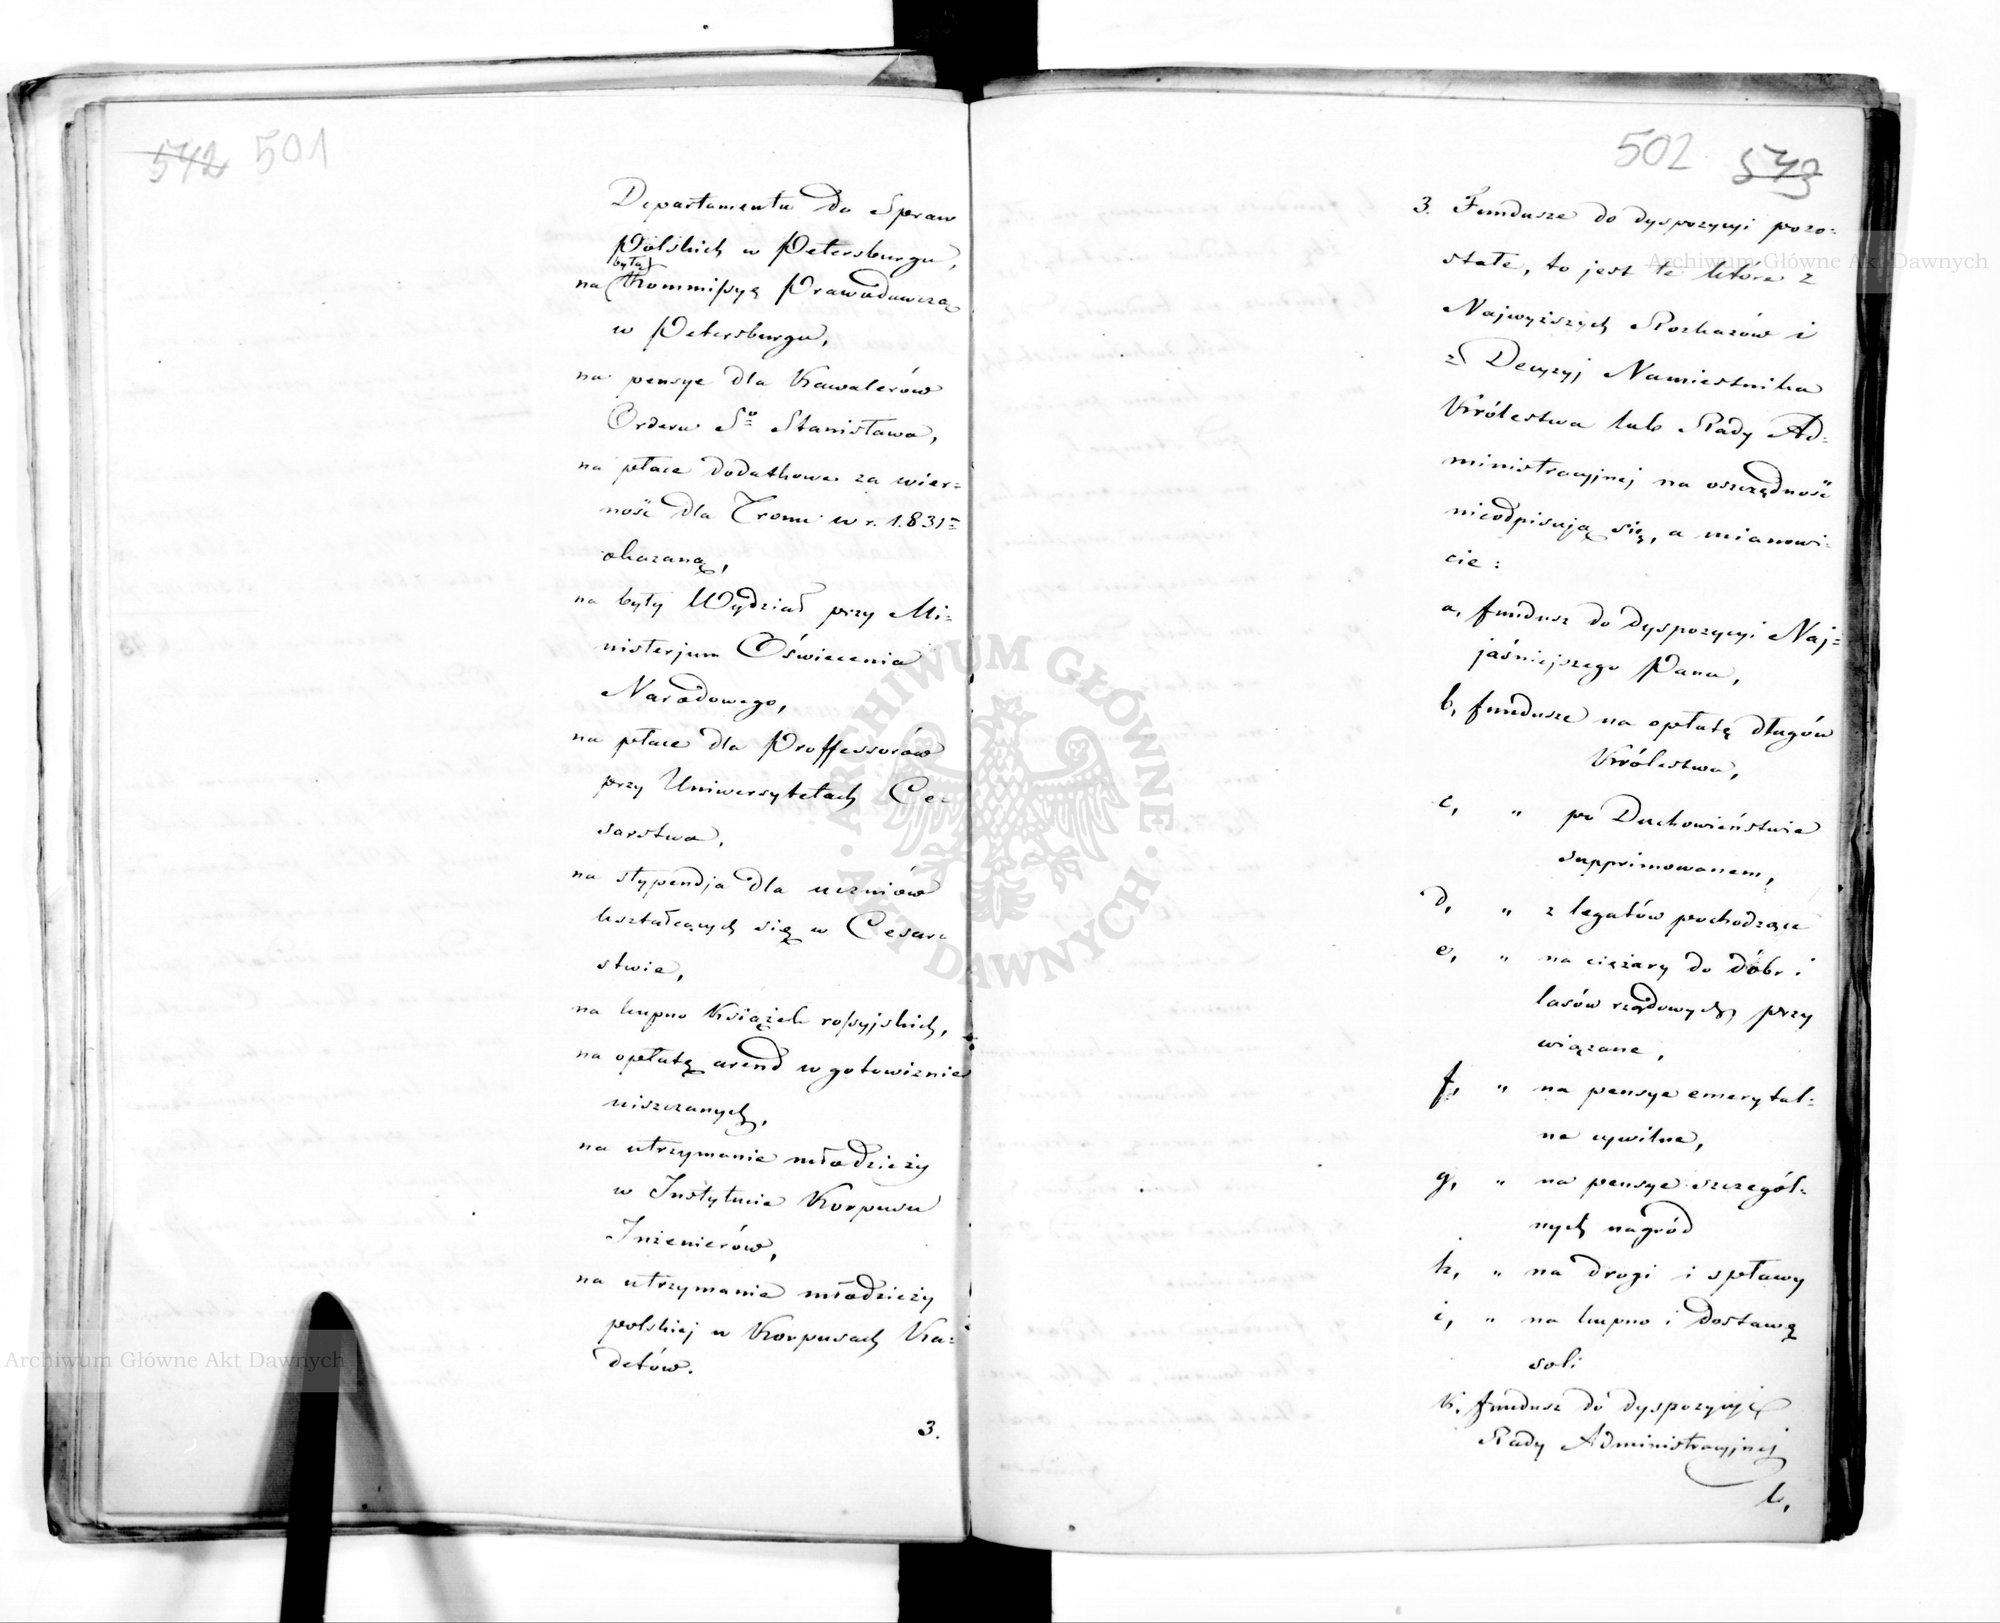 542 501
Departamentu do Spraw
Polskich w Petersburgu,
byłą
na Kommissyą Prawodawczą
w Petersburgu,
na pensye dla Kawalerów
Orderu Sgo Stanisława,
na płace dodatkowe za wier=
ność dla Tronu w r. 1831m
okazaną,
na były Wydział przy Mi=
nisterjum Oświecenia
Narodowego,
na płace dla Proffessorów
przy Uniwersytetach Ce=
sarstwa,
na stypendja dla uczniów
kształcących się w Cesar=
stwie,
na kupno Książek rossyjskich,
na opłatę arend w gotowiźnie
uiszczanych,
na utrzymanie młodzieży
w Instytucie Korpusu
Inżenierów,
na utrzymanie młodzieży
polskiej w Korpusach Ka=
detów.
3.
502 543
3. Fundusze do dyspozycyi pozo=
stałe, to jest te które z
Najwyższych Rozkazów i
z Decyzyj Namiestnika
Królestwa lub Rady Ad=
ministracyjnej na oszczędność
nieodpisują się, a mianowi=
cie:
a, fundusz do dyspozycyi Naj=
jaśniejszego Pana,
b, fundusze na opłatę długów
Królestwa,
c, " po Duchowieństwie
supprimowanem,
d, " z legatów pochodzące
e, " na ciężary do dóbr i
lasów rządowych przy
wiązane,
f, " na pensye emerytal=
ne cywilne,
g, " na pensye szczegól=
nych nagród
h, " na drogi i spławy
i, " na kupno i dostawę
soli
k, fundusz do dyspozycyi
Rady Administracyjnej
l,
ARCHIWUM GŁÓWNE
AKT DAWNYCH
Archiwum Główne Akt Dawnych
Archiwum Główne Akt Dawnych